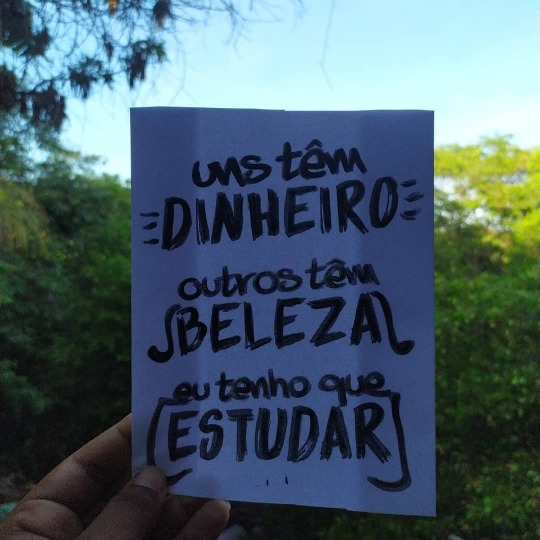 uns têm
DINHEIRO
outros têm
BELEZA
eu tenho que
ESTUDAR
...